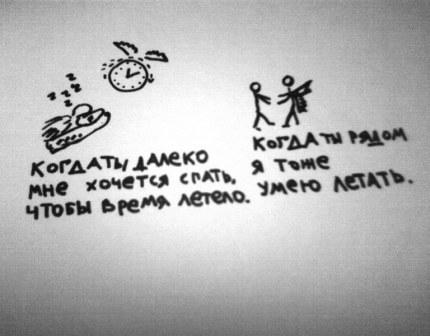 z z z z z z
Когда ты далеко
мне хочется спать,
чтобы время летело.
Когда ты рядом
я тоже
умею летать.